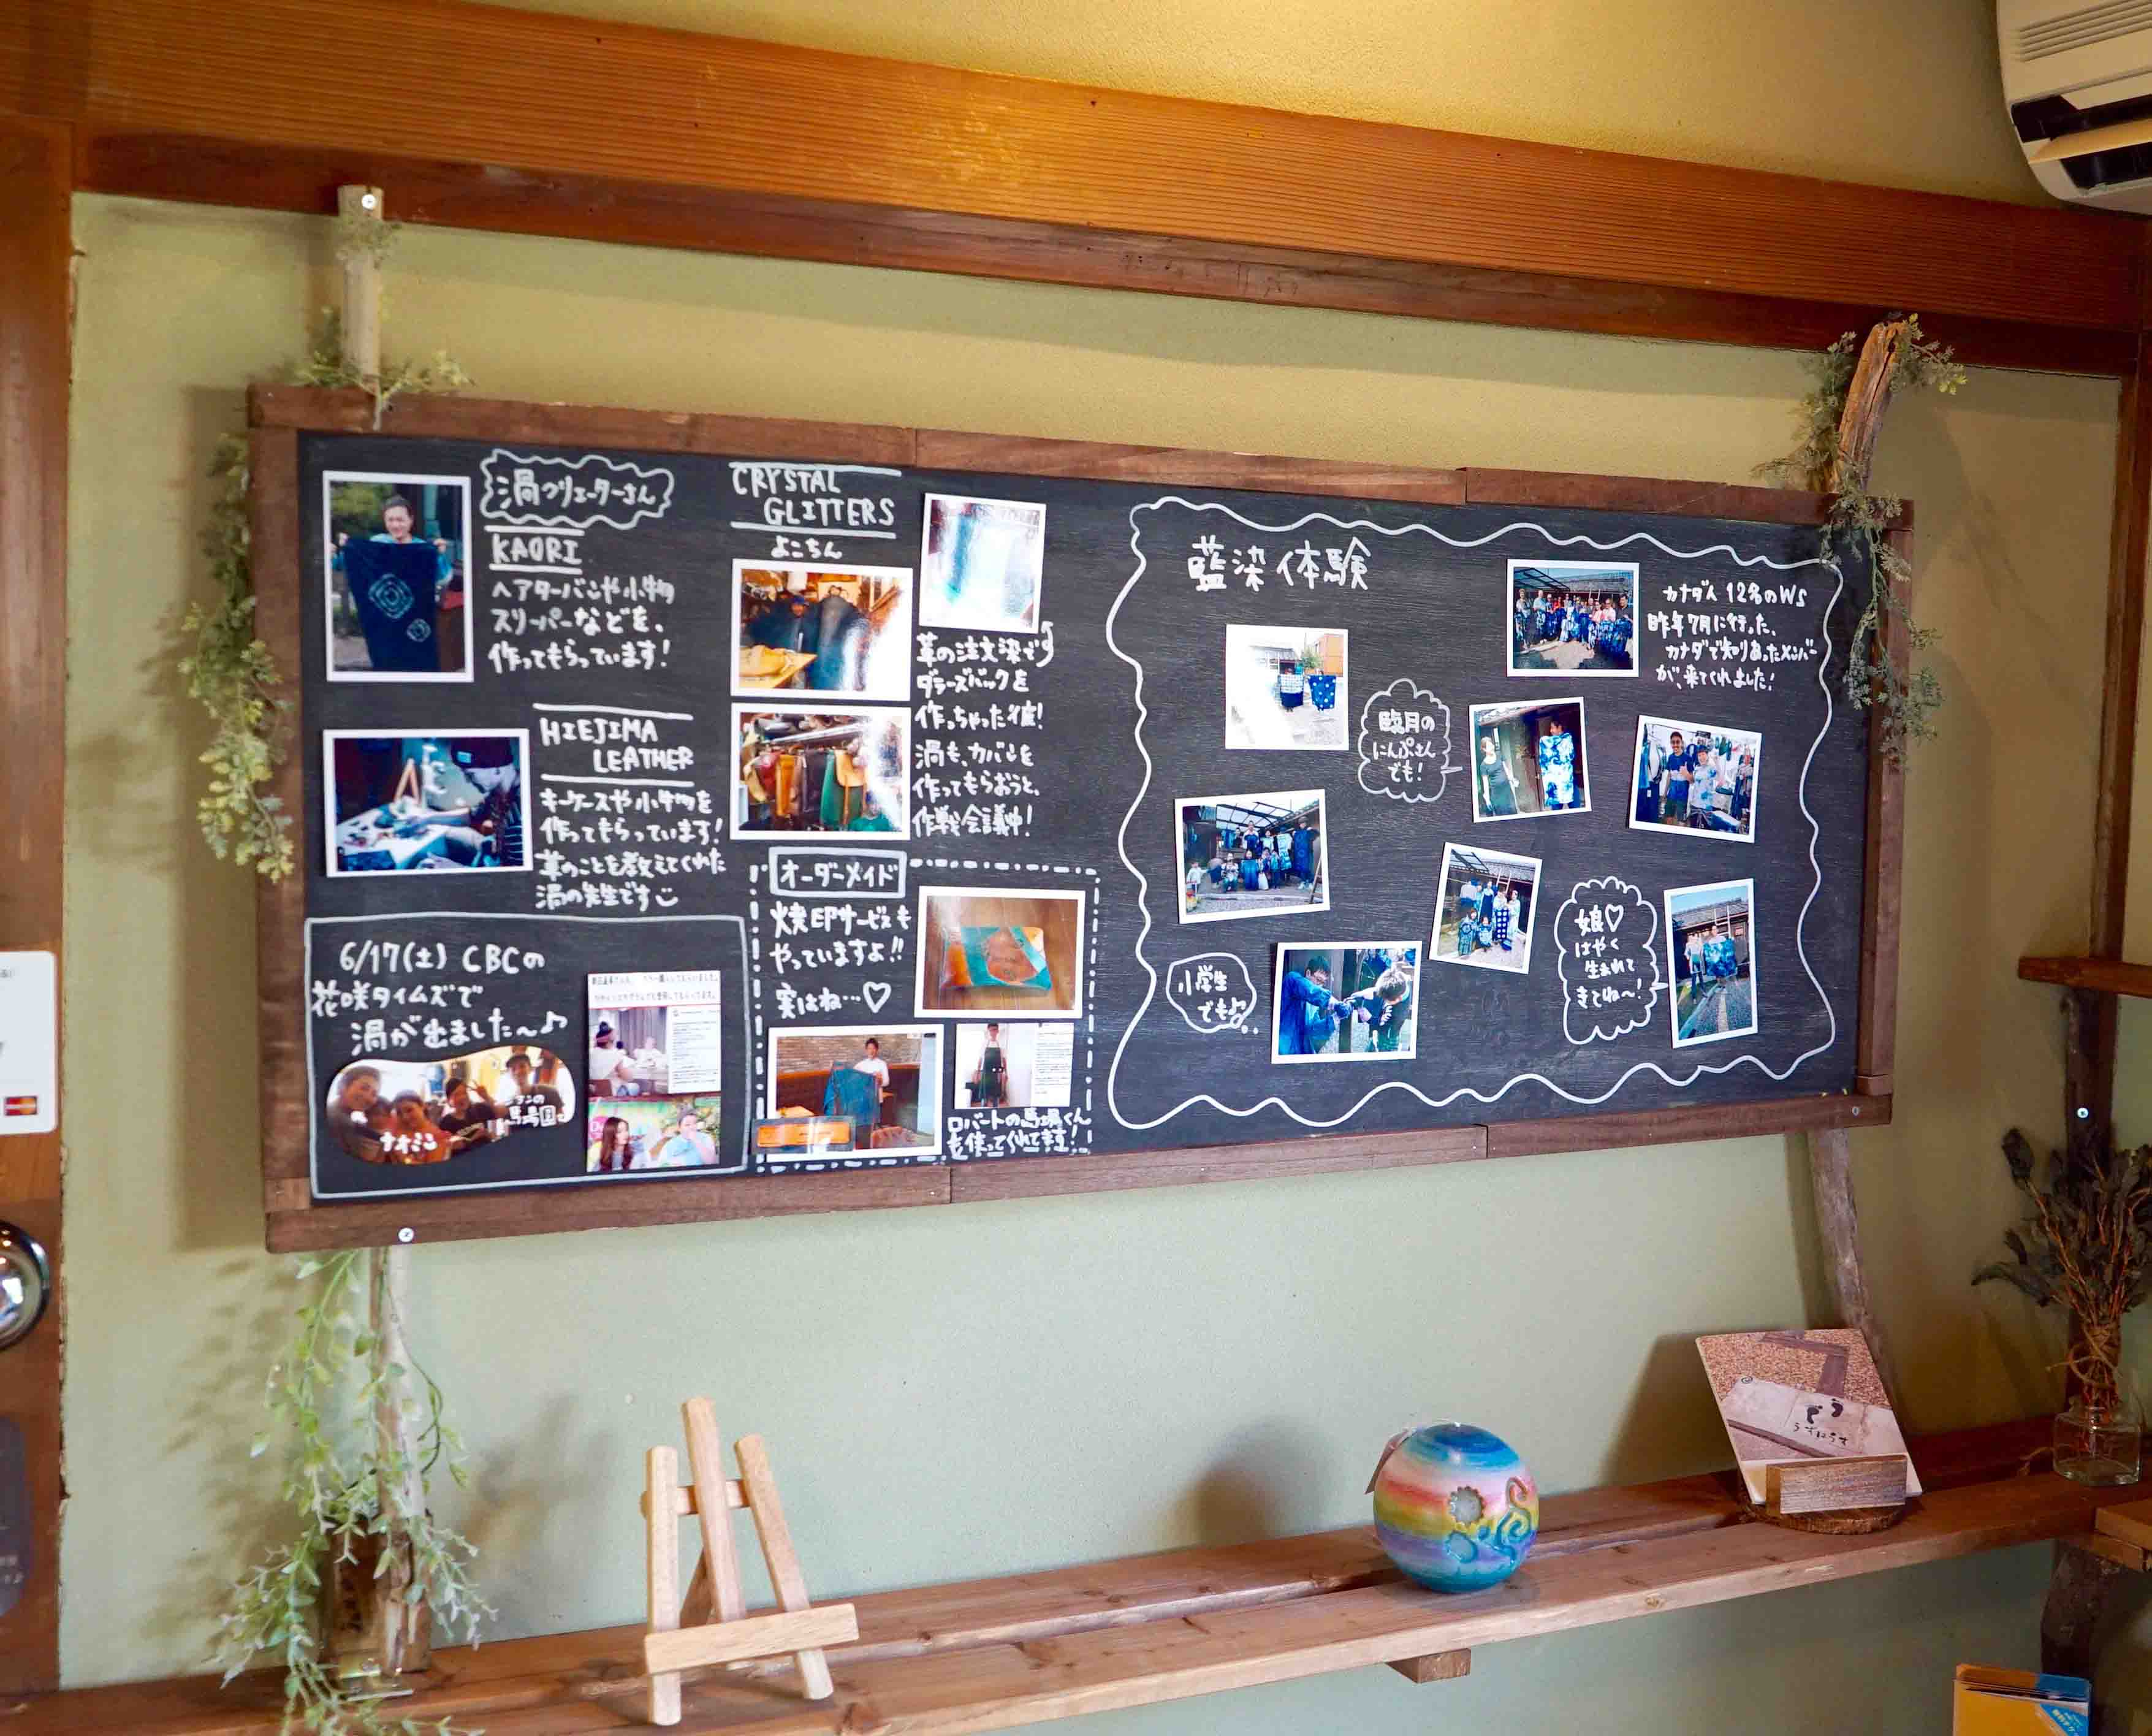 渦クリエーターさん
KAORI
ヘアターバンや小物
スリーパーなどを、
作ってもらっています!
HIEJIMA
LEATHER
キーケースや小物を
作ってもらっています!
革のことを教えてくれた
渦の先生です
6/17(土) CBCの
花咲タイムズで
渦が出ました〜♪
ナオミ
馬場園
CRYSTAL
GLITTERS
よこちん
革の注文染で
ダラーズバックを
作っちゃった彼!
渦も、カバンを
作ってもらおうと、
作戦会議中!
オーダーメイド
焼印サービスも
やっていますよ!!
実はね…♡
ロバートの馬場くん
も使ってくれてます!
藍染体験
カナダ人 12名のWS
昨年7月に行った、
カナダで知りあったメンバー
が、来てくれました!
臨月の
にんぷさん
でも!
小学生
でも♪
娘♡
はやく
生まれて
きてね〜!
うずにうす